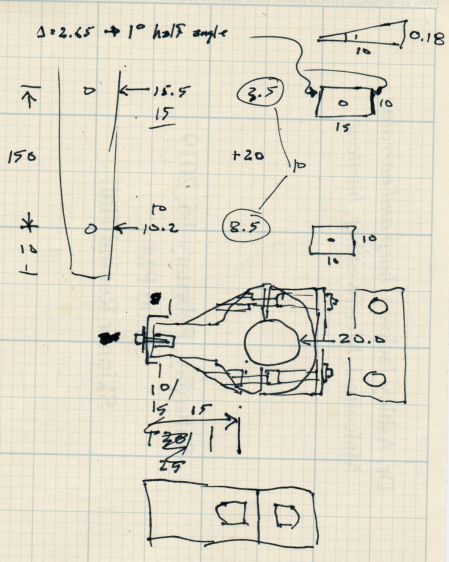 Δ = 2.65 → 1° half angle
0.18
10
15.5
15
3.5
10
15
150
+20
10
10
10.2
8.5
10
10
10
20.0
10/
15 15
30
25